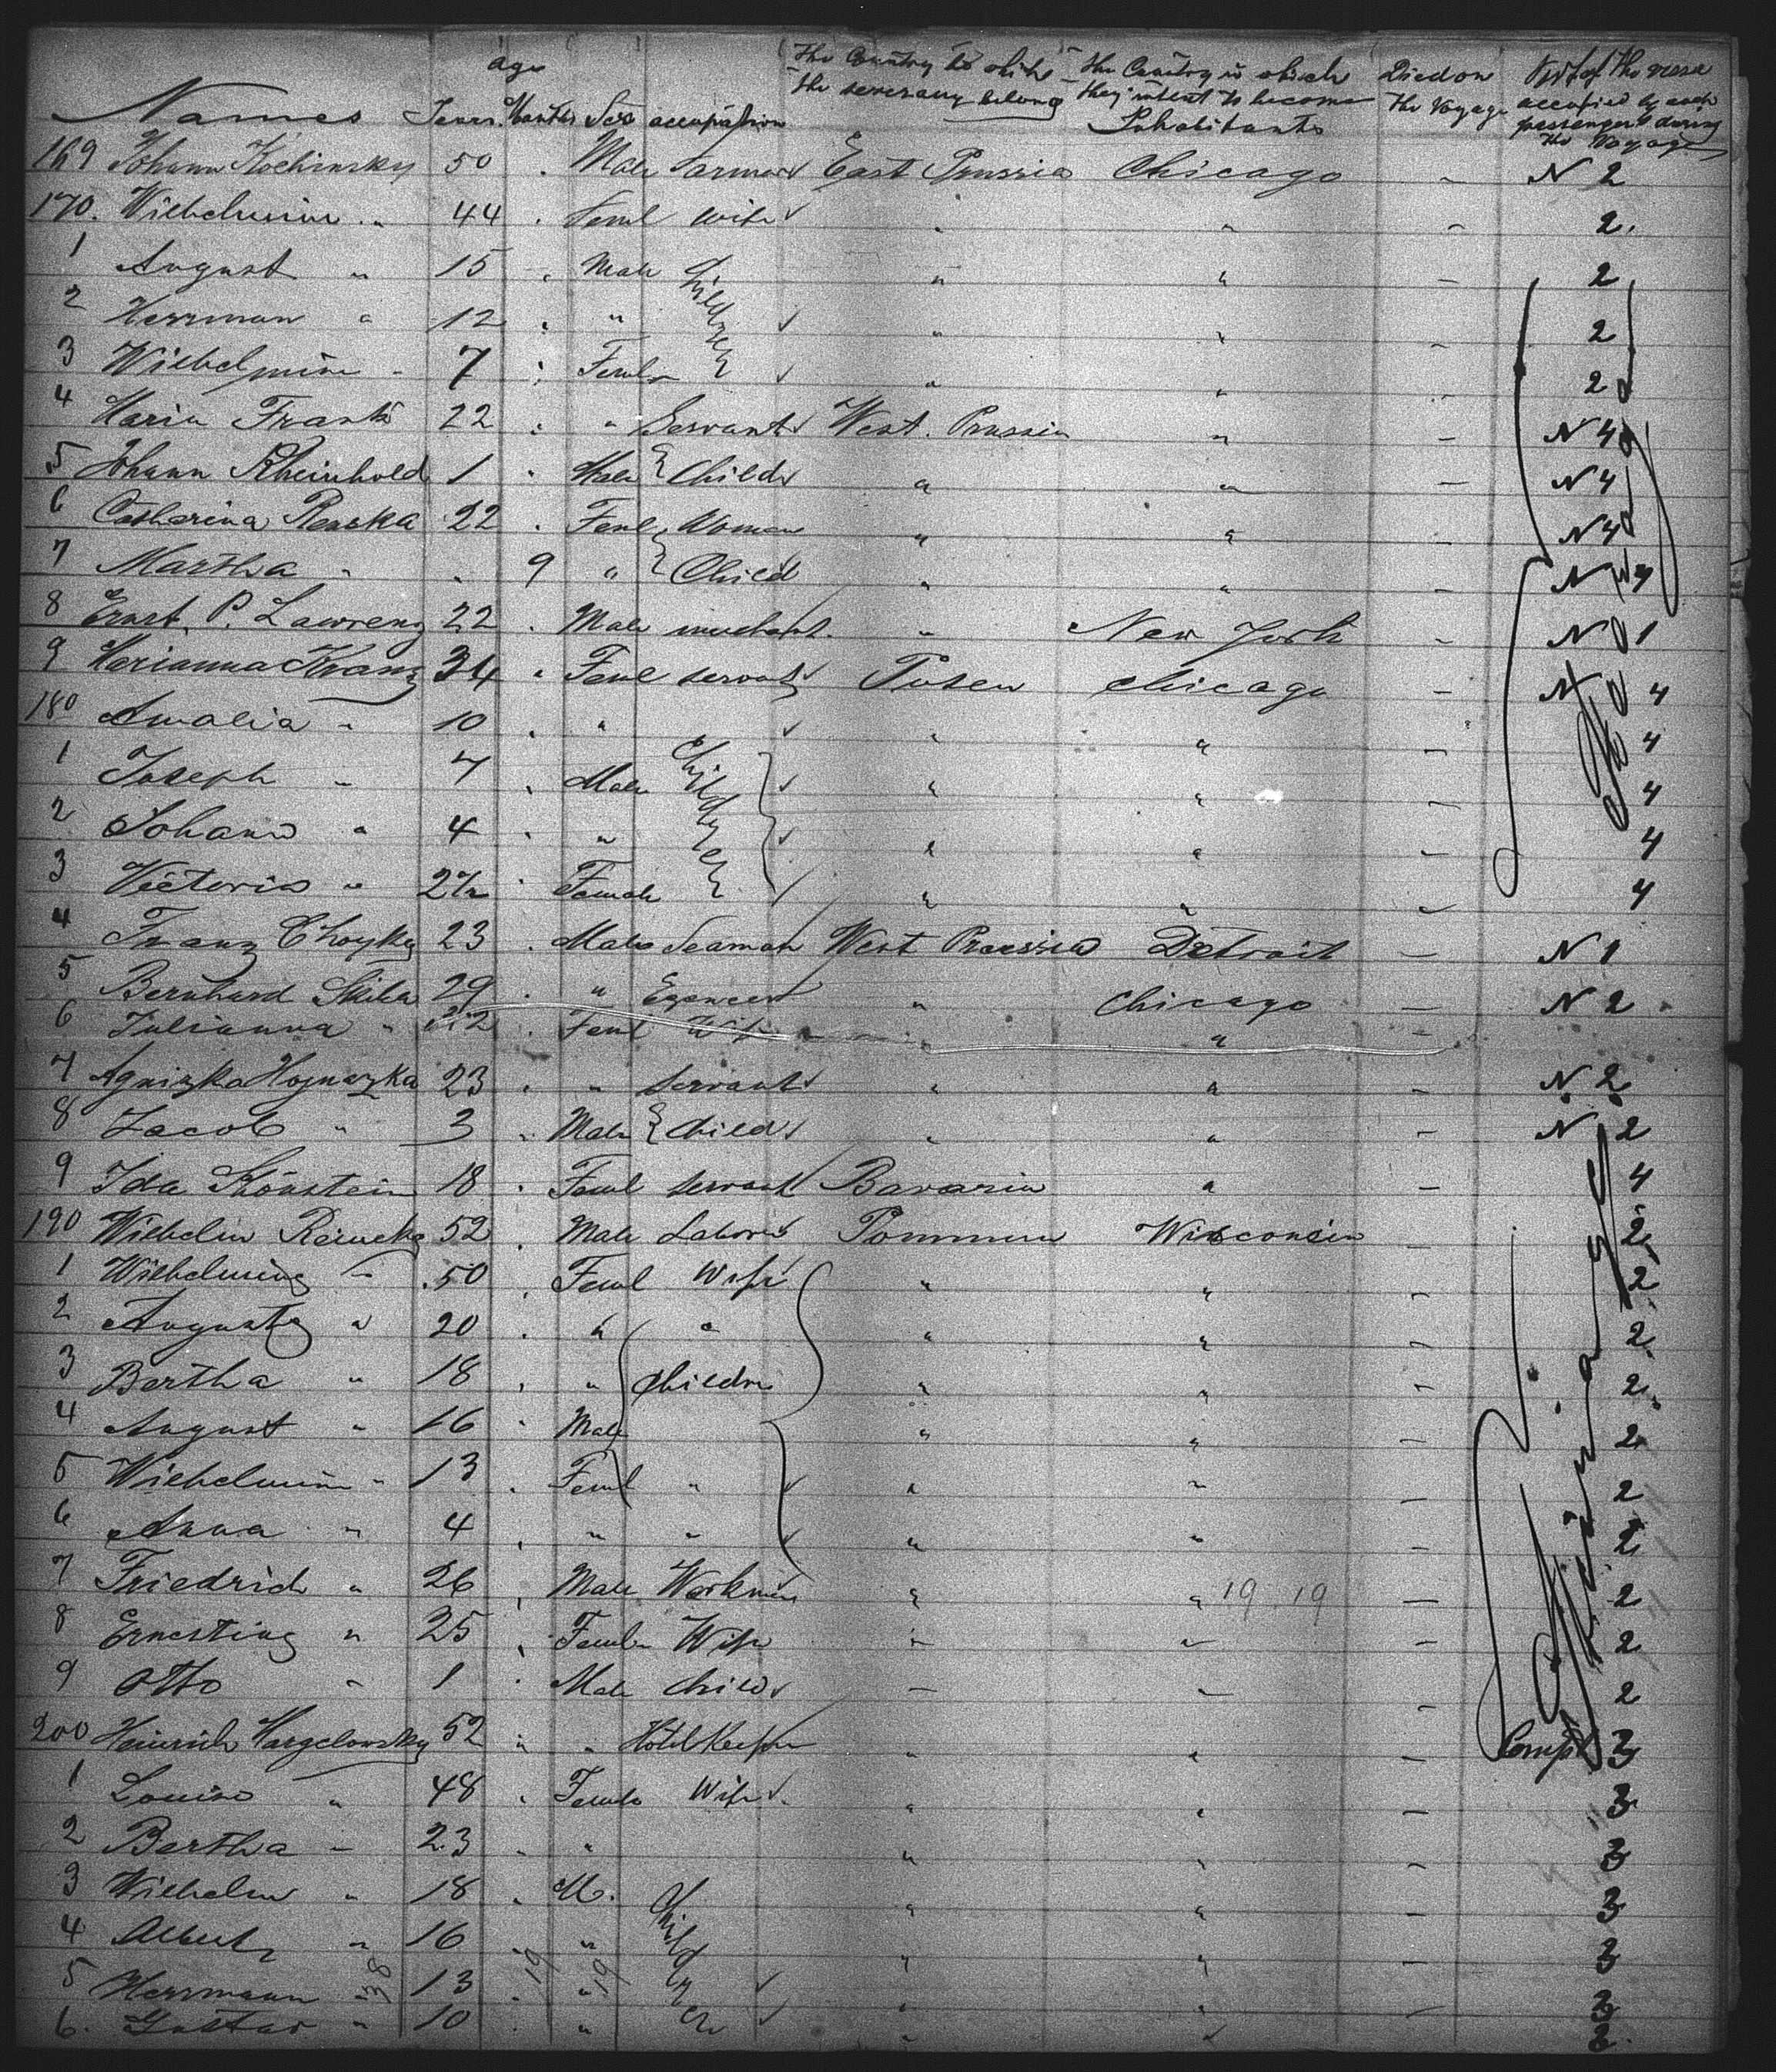 Age
Names Years Months Sex occupation The Country to which the severally belong the Country in which they intent to become Inhabitants Died on the Voyage Part of the vessel occupied by each passenger during the Voyage
169 Johann Kochinsky 50 . Male Farmer East Prussia Chicago - N 2
170. Wilhelmine " 44 . Feml Wife " " - 2.
1 August " 15 . Male Children " " - 2
2 Herrman " 12 . " " " - 2
3 Wilhelmine - 7 . Femle " " - 2
4 Maria Frank 22 . " Servant West. Prussia " - N 4
5 Johann Rheinhold 1 . Male Child " " - N 4
6 Catharina Renska 22 . Feml Woman " " - N 4
7 Martha " . 9 " Child " " - N 4
8 Ernst. P. Lawrenz 22 . Male merchant. " New York - N 1
9 Marianna Kranz 34 . Feml servant Posen Chicago - N 4
180 Amalia " 10 . " " " - 4
1 Joseph " 7 . Male Children " " - 4
2 Johann " 4 . " " " - 4
3 Victoria " 2 1/2 . Female " " - 4
4 Franz 23 . Male Seaman West Prussia Detroit - N 1
5 Bernhard 29 . " Chicago - N 2
6 Julianna " 22 . Feml Wife " " -
7 Agnizka 23 . " servant " " - N. 2
8 Jacob " 3 . Male Child " " - N 2
9 Ida 18 . Feml servant Bavaria " - 4
190 Wilhelm Reincke 52 . Male Labore Pommern Wisconsin - 2
1 Wilhelmine " 50 . Feml Wife " " - 2
2 Auguste " 20 . " " " " - 2
3 Bertha " 18 . " Children " " - 2
4 August " 16 . Male " " - 2
5 Wilhelmine " 13 . Feml " " " - 2
6 Anna " 4 . " " " " - 2
7 Friedrich " 26 . Male Workman " " 19 19 - 2
8 Ernestine " 25 . Femle Wife " " - 2
9 Otto " 1 . Male Child - - - 2
200 Heinrich 52 " " Hotel Keeper " " - 3
1 Louise " 48 . Female Wife " " - 3
2 Bertha " 23 . " " " - 3
3 Wilhelm " 18 . M. Children " " - 3
4 Albert " 16 . " " " - 3
5 Herrmann " 38 13 . 19 " 19 " " - 3
6. Gustav " 10 . " " " 3.
Steerage
Steerage